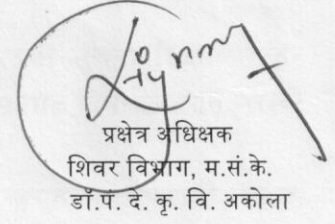 प्रक्षेत्र अधिक्षक
शिवर विभाग, म.सं.के.
डॉ.पं. दे. कृ. वि. अकोला